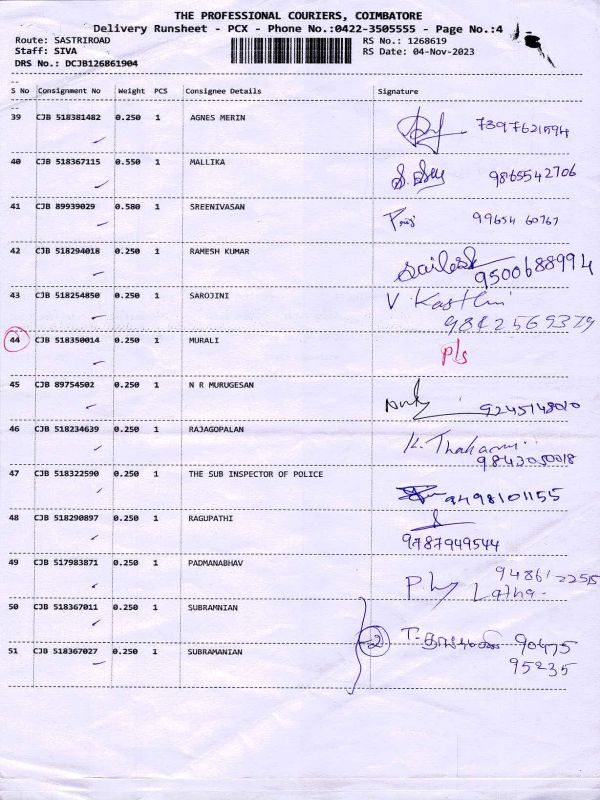 THE PROFESSIONAL COURIERS, COIMBATORE
Delivery Runsheet - PCX - Phone No.:0422-3505555 - Page No.:4
Route: SASTRIROAD RS No.: 1268619
Staff: SIVA RS Date: 04-Nov-2023
DRS No.: DCJB126861904
S No Consignment No Weight PCS Consignee Details Signature
39 CJB 518381482 0.250 1 AGNES MERIN
40 CJB 518367115 0.550 1 MALLIKA 9865542706
41 CJB 89939029 0.580 1 SREENIVASAN 99654 60767
42 CJB 518294018 0.250 1 RAMESH KUMAR
9500688994
43 CJB 518254850 0.250 1 SAROJINI V
9842569379
44 CJB 518350014 0.250 1 MURALI P/s
45 CJB 89754502 0.250 1 N R MURUGESAN
9245148010
46 CJB 518234639 0.250 1 RAJAGOPALAN K.
9843050018
47 CJB 518322590 0.250 1 THE SUB INSPECTOR OF POLICE
9498101155
48 CJB 518290897 0.250 1 RAGUPATHI
9787949544
49 CJB 517983871 0.250 1 PADMANABHAV
Latha-
50 CJB 518367011 0.250 1 SUBRAMNIAN
2 T- 90475
51 CJB 518367027 0.250 1 SUBRAMANIAN 95235